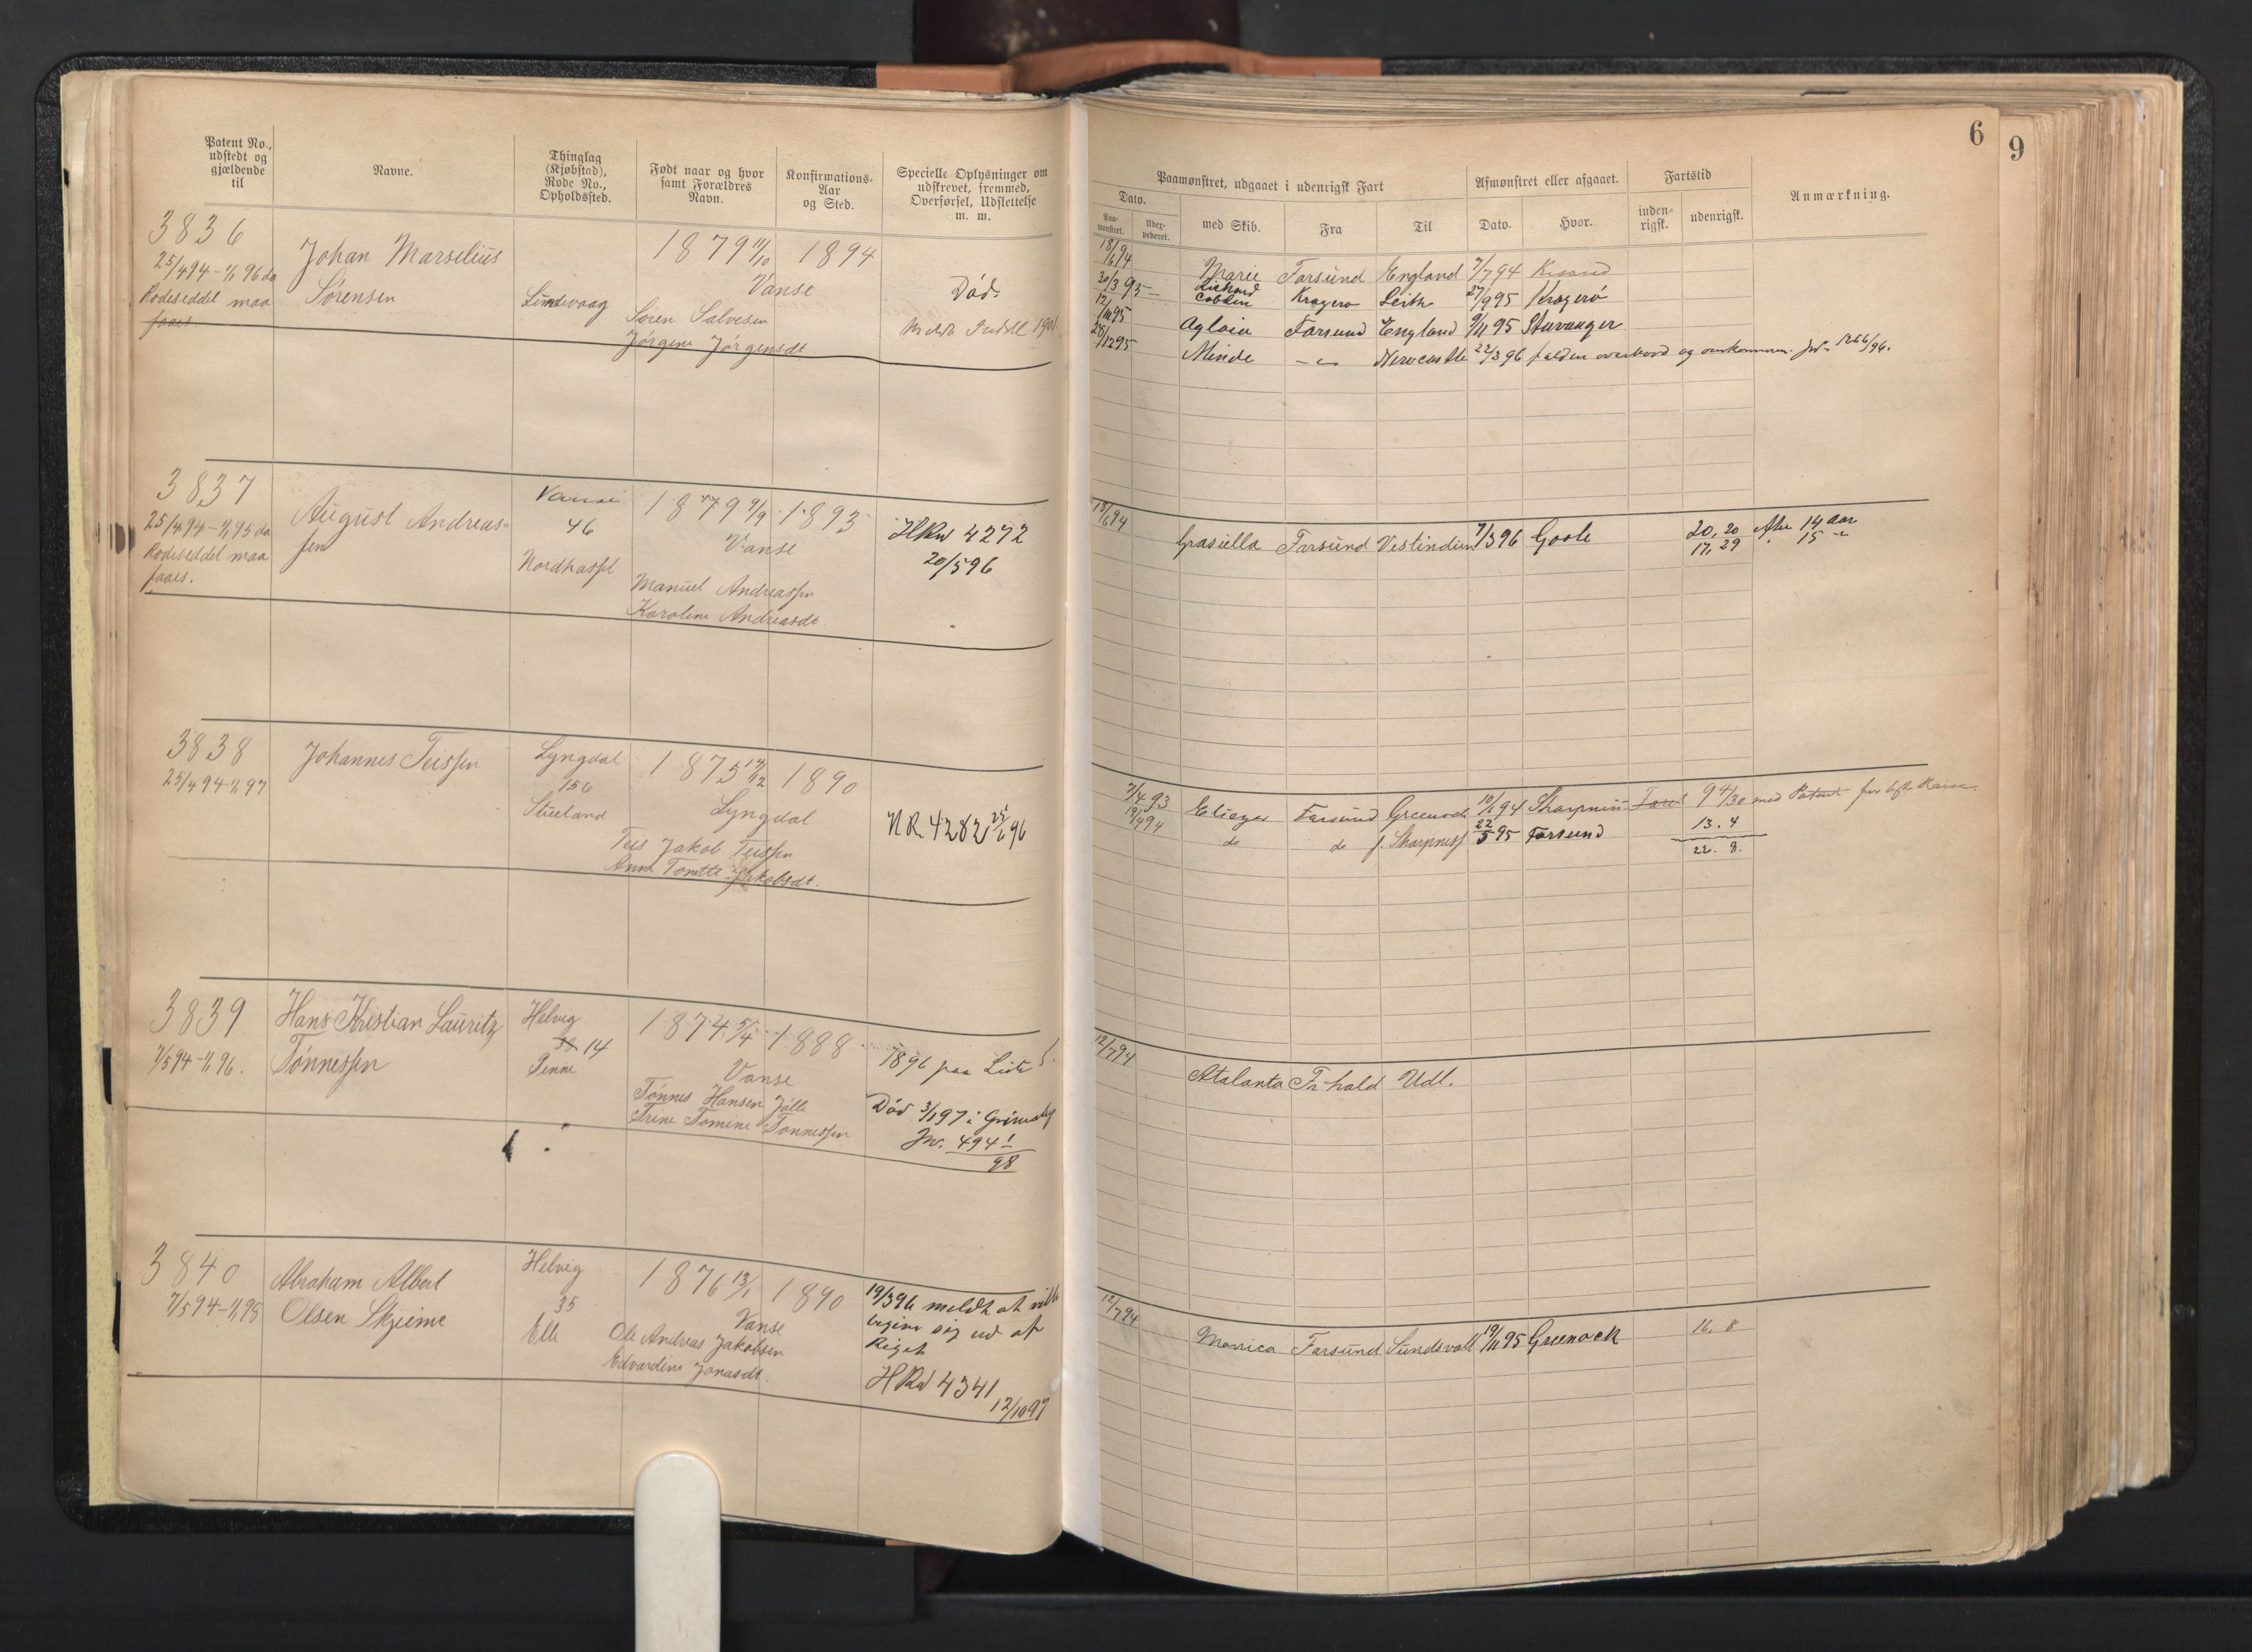 6
9
Patent No.,
udstedt og
gjældende
til
Navne.
Thinglag
(Kjøbstad),
Rode No.,
Opholdssted.
Født naar og hvor
samt Forældres
Navn.
Konfirmations-
Aar
og Sted.
Specielle Oplysninger om
udskrevet, fremmed,
Overførsel, Udslettelse
m. m.
3836
25/4 94 - 1/1 96 da
Rodeseddel maa
faaes.
Johan Marselius
Sørensen
1879 11/10
Vanse
Søren Salvesen
Jørgine Jørgensdt.
1894
Død.
3837
25/4 94 - 1/1 95 da
Rodeseddel maa
faaes.
August Andreas-
sen
Vanse
46
Nordhassel
1879 9/9
Vanse
Manuel Andreassen
Karoline Andreasdt
1893
HRw 4272
20/5 96
3838
25/4 94 - 1/1 97
Johannes Teissen
Lyngdal
156
Stueland
1875 17/12
Lyngdal
Teis Jakob Teissen
Anne Tomette Jakobsdt.
1890
NR. 4282 25/6 96
3839
7/5 94 - 1/1 96.
Hans Kristian Lauritz
Tønnessen
Helvig
14
Penne
1874 5/4
Vanse
Tønnes Hansen Jølle
Trine Tomine Tønnessen
1888
1896 paa Liste
Død 3/1 97 i Grimsby
Jw. 494
98
3840
7/5 94 - 1/1 98
Abraham Albert
Olsen Skjeime
Helvig
35
Elle
1876 13/1
Vanse
Ole Andreas Jakobsen
Edvardine Jonasdt.
1890
19/3 96 meldt at ville
begive sig ud af
Riget
HRw 4341
12/10 97
Paamønstret, udgaaet i udenrigsk Fart
Afmønstret eller afgaaet.
Fartstid
Anmærkning.
Dato.
Paa-
mønstret.
Udex-
pederet.
med Skib.
Fra
Til
Dato.
Hvor.
inden-
rigsk.
udenrigsk.
18/6 94
Marie Farsund England 7/7 94
30/3 95 Richard
Cobden Kragerø Leith 27/9 95 Kragerø
12/10 95
Aglaia Farsund England 9/11 95 Stavanger
28/12 95
Minde Newcastle 22/3 96 falden overbord og omkommen. Jw. 1266/96.
18/6 94
Grasiella Farsund Vestindien 7/3 96 Goole 20. 20 14 Aar
17. 29 15
7/4 93 Eliezer Farsund Greenock 10/1 94 Sharpness 9 4/30 med Patent
19/4 94 do do f. Sharpness 22/5 95 Farsund 13. 4
22. 8.
12/7 94
Atalanta Fr.hald Udl.
12/7 94
Monica Farsund Sundsvall 19/11 95 Greenock 16. 8